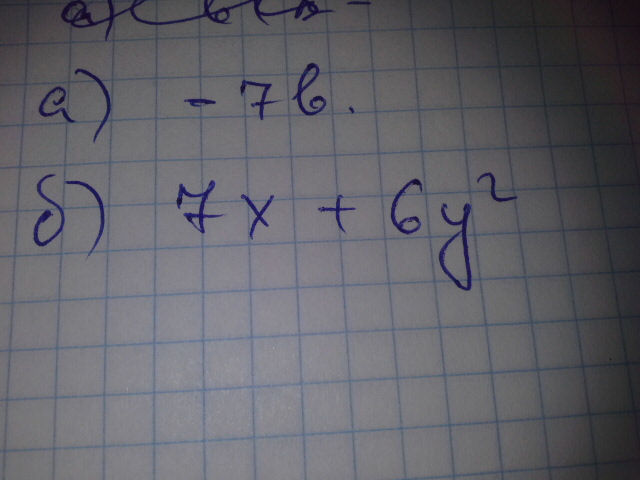 а) - 7в.
б) 7x + 6y²